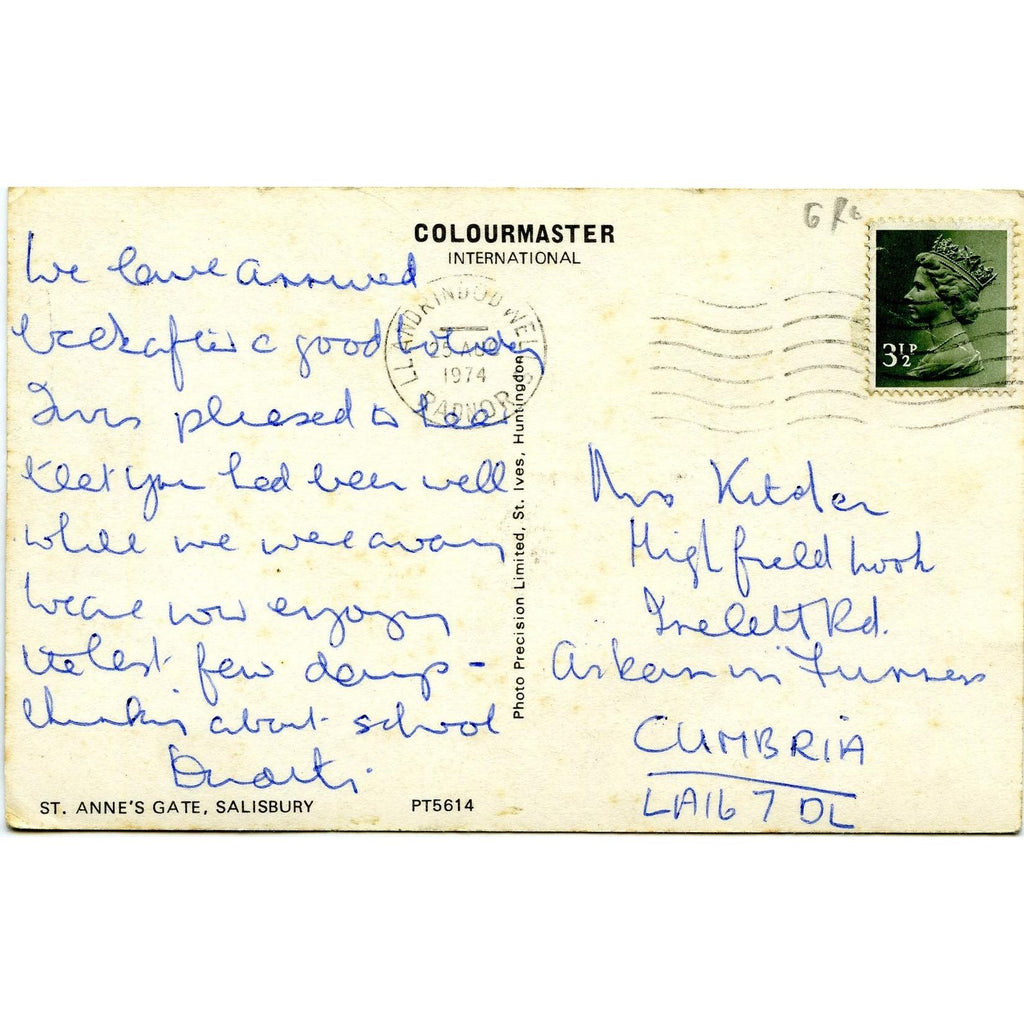 COLOURMASTER
INTERNATIONAL
We have arrived
back after a good holiday
I was pleased to hear
that you had been well
while we were away
We are now enjoying
the last few days -
thinking about school
ST. ANNE'S GATE, SALISBURY
PT5614
Photo Precision Limited, St. Ives, Huntingdon
LLANDRINDOD WELLS
25 AUG
1974
RADNOR
3½P
Mrs
Highfield
Ireleth Rd.
Askam in Furness
CUMBRIA
LA16 7DL